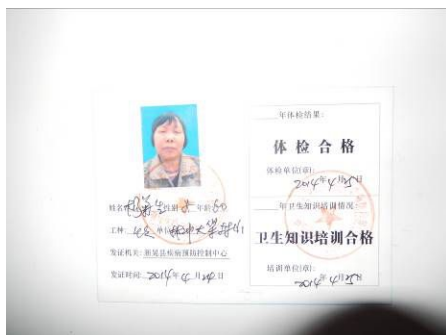 姓名 性别 女 年龄 60
工种 单位
发证机关:新晃县疾病预防控制中心
发证时间:2014年4月24日
年体检结果:
体检合格
体检单位(章):
2014年4月25日
年卫生知识培训情况:
卫生知识培训合格
培训单位(章):
2014年4月25日